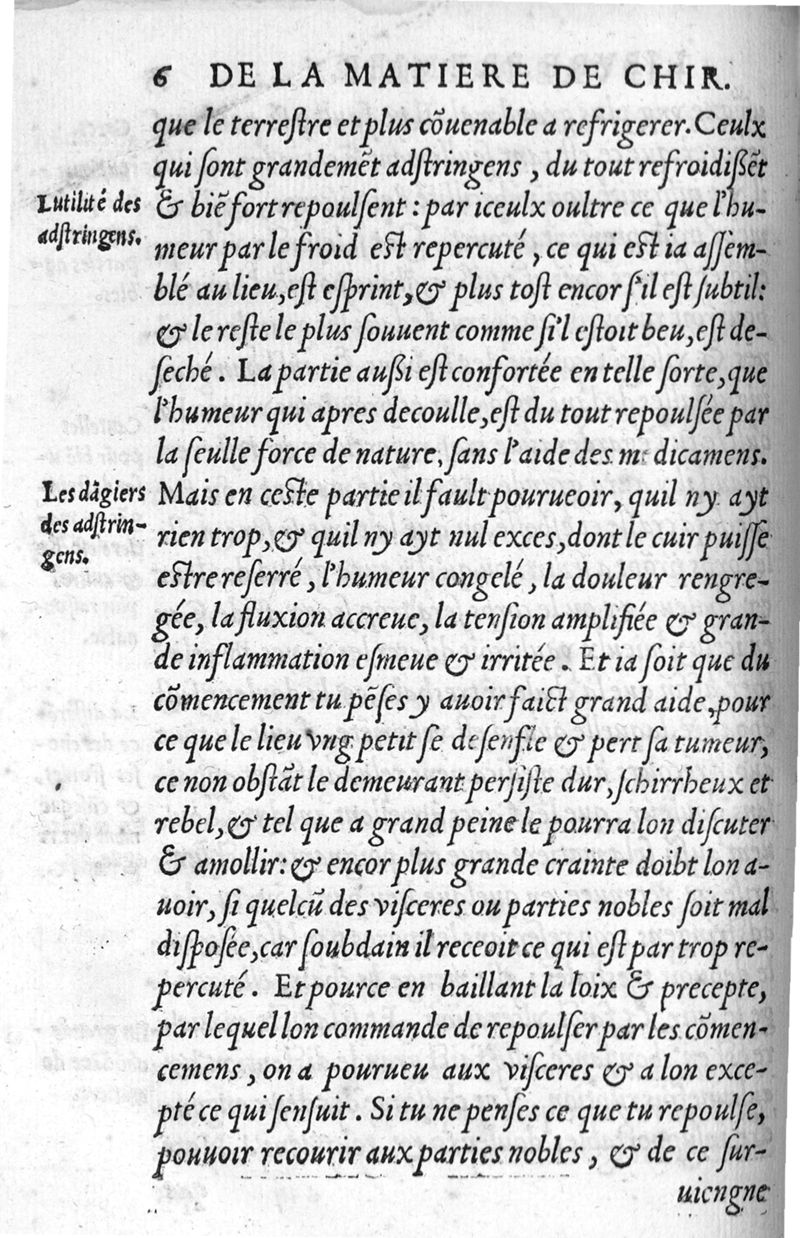 6 DE LA MATIERE DE CHIR.
que le terreſtre et plus cõuenable a refrigerer. Ceulx
qui ſont grandemẽt adſtringens, du tout refroidiſſẽt
Lutilité des
adſtringens.
& biẽ fort repoulſent : par iceulx oultre ce que l'hu-
meur par le froid eſt repercuté, ce qui eſt ia aſſem-
blé au lieu, eſt eſprint, & plus toſt encor ſ'il eſt ſubtil:
& le reſte le plus ſouuent comme ſi'l eſtoit beu, eſt de-
ſeché. La partie auſſi eſt confortée en telle ſorte, que
l'humeur qui apres decoulle, eſt du tout repoulſée par
la ſeulle force de nature, ſans l'aide des medicamens.
Les dãgiers
des adſtrin-
gens.
Mais en ceſte partie il fault pourueoir, quil ny ayt
rien trop, & quil ny ayt nul exces, dont le cuir puiſſe
eſtre reſerré, l'humeur congelé, la douleur rengre-
gée, la fluxion accreue, la tenſion amplifiée & gran-
de inflammation eſmeue & irritée. Et ia ſoit que du
cõmencement tu pẽſes y auoir faict grand aide, pour
ce que le lieu vng petit ſe deſenfle & pert ſa tumeur,
ce non obſtãt le demeurant perſiſte dur, ſchirrheux et
rebel, & tel que a grand peine le pourra lon diſcuter
& amollir: & encor plus grande crainte doibt lon a-
uoir, ſi quelcũ des viſceres ou parties nobles ſoit mal
diſpoſée, car ſoubdain il receoit ce qui eſt par trop re-
percuté. Et pource en baillant la loix & precepte,
par lequel lon commande de repoulſer par les cõmen-
cemens, on a pourueu aux viſceres & a lon exce-
pté ce qui ſenſuit. Si tu ne penſes ce que tu repoulſe,
pouuoir recourir aux parties nobles, & de ce ſur-
uiengne